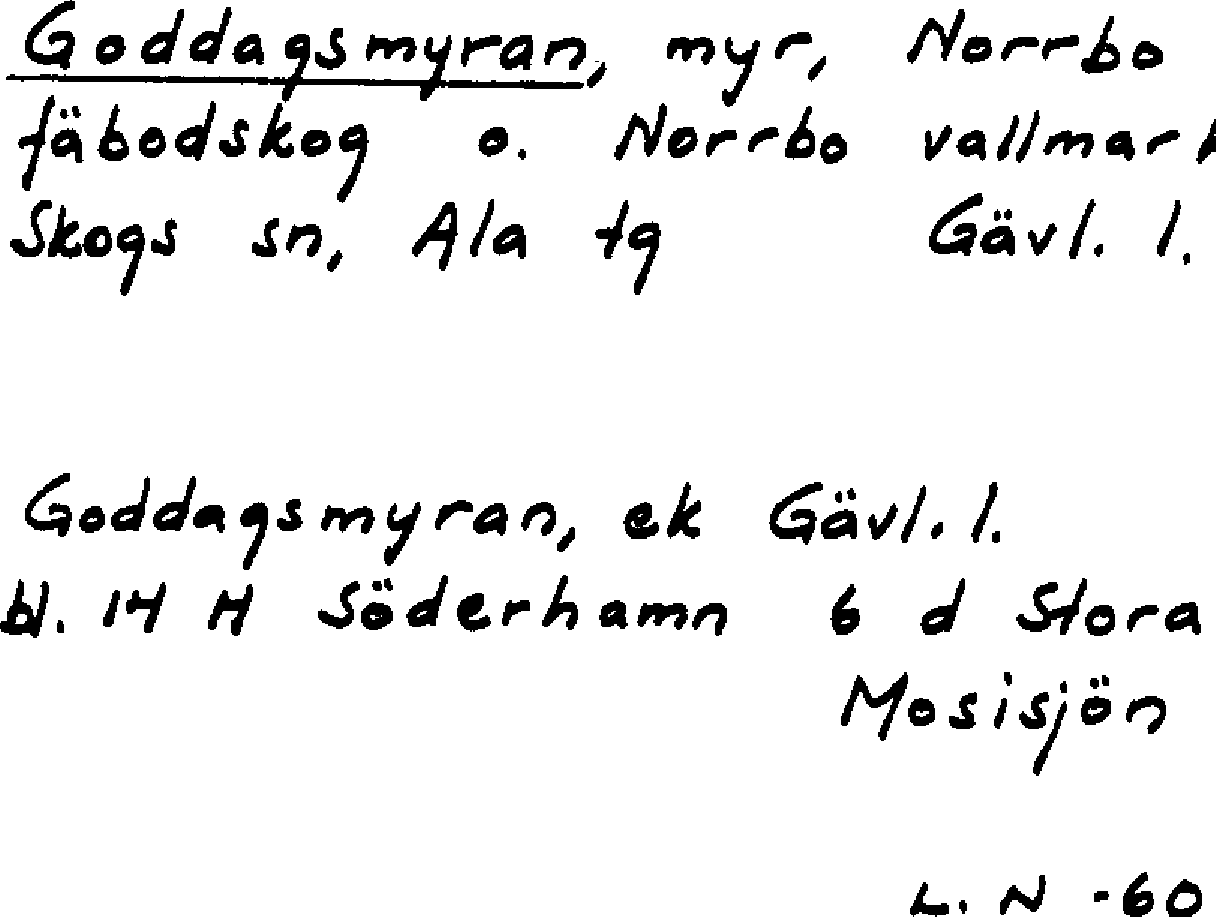 Goddagsmyran, myr, Norrbo
fäbodskog o. Norrbo vallmark
Skogs sn, Ala tg Gävl. l.
Goddagsmyran, ek Gävl. l.
bl. 14 H Söderhamn 6 d Stora
Mosisjön
L. N -60